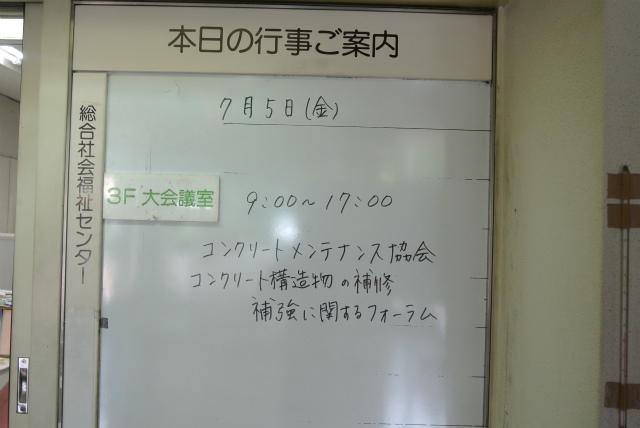 本日の行事ご案内
総合社会福祉センター
7月5日(金)
3F 大会議室
9:00~17:00
コンクリートメンテナンス協会
コンクリート構造物の補修
補強に関するフォーラム